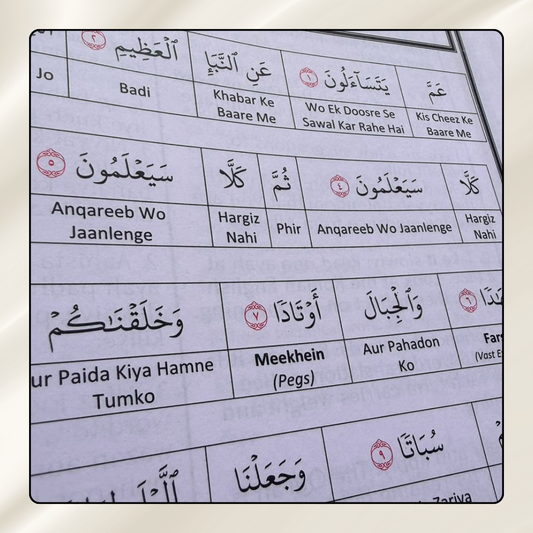 عَمَّ يَتَسَآءَلُونَ ١ عَنِ ٱلنَّبَإِ ٱلْعَظِيمِ ٢
Kis Cheez Ke Baare Me
Wo Ek Doosre Se Sawal Kar Rahe Hai
Khabar Ke Baare Me
Badi
Jo
كَلَّا سَيَعْلَمُونَ ٤ ثُمَّ كَلَّا سَيَعْلَمُونَ ٥
Hargiz Nahi
Anqareeb Wo Jaanlenge
Phir
Hargiz Nahi
Anqareeb Wo Jaanlenge
٦ وَٱلْجِبَالَ أَوْتَادًا ٧ وَخَلَقْنَٰكُمْ
Aur Pahadon Ko
Meekhein (Pegs)
ur Paida Kiya Hamne Tumko
سُبَاتًا ٩ وَجَعَلْنَا